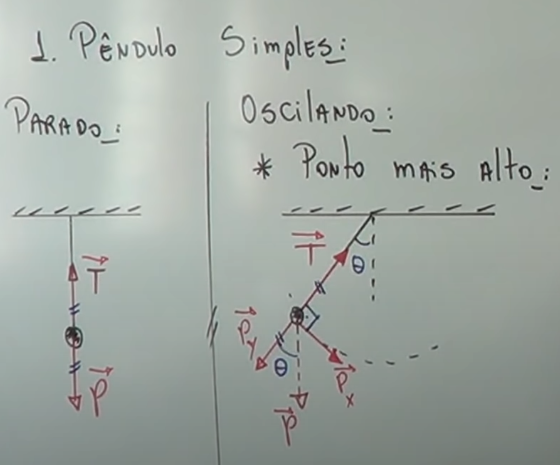 1. PÊNDULO Simples:
PARADO:
OSCILANDO:
* PONTO MAIS ALTO:
T
P
T
θ
Py
θ
P
Px